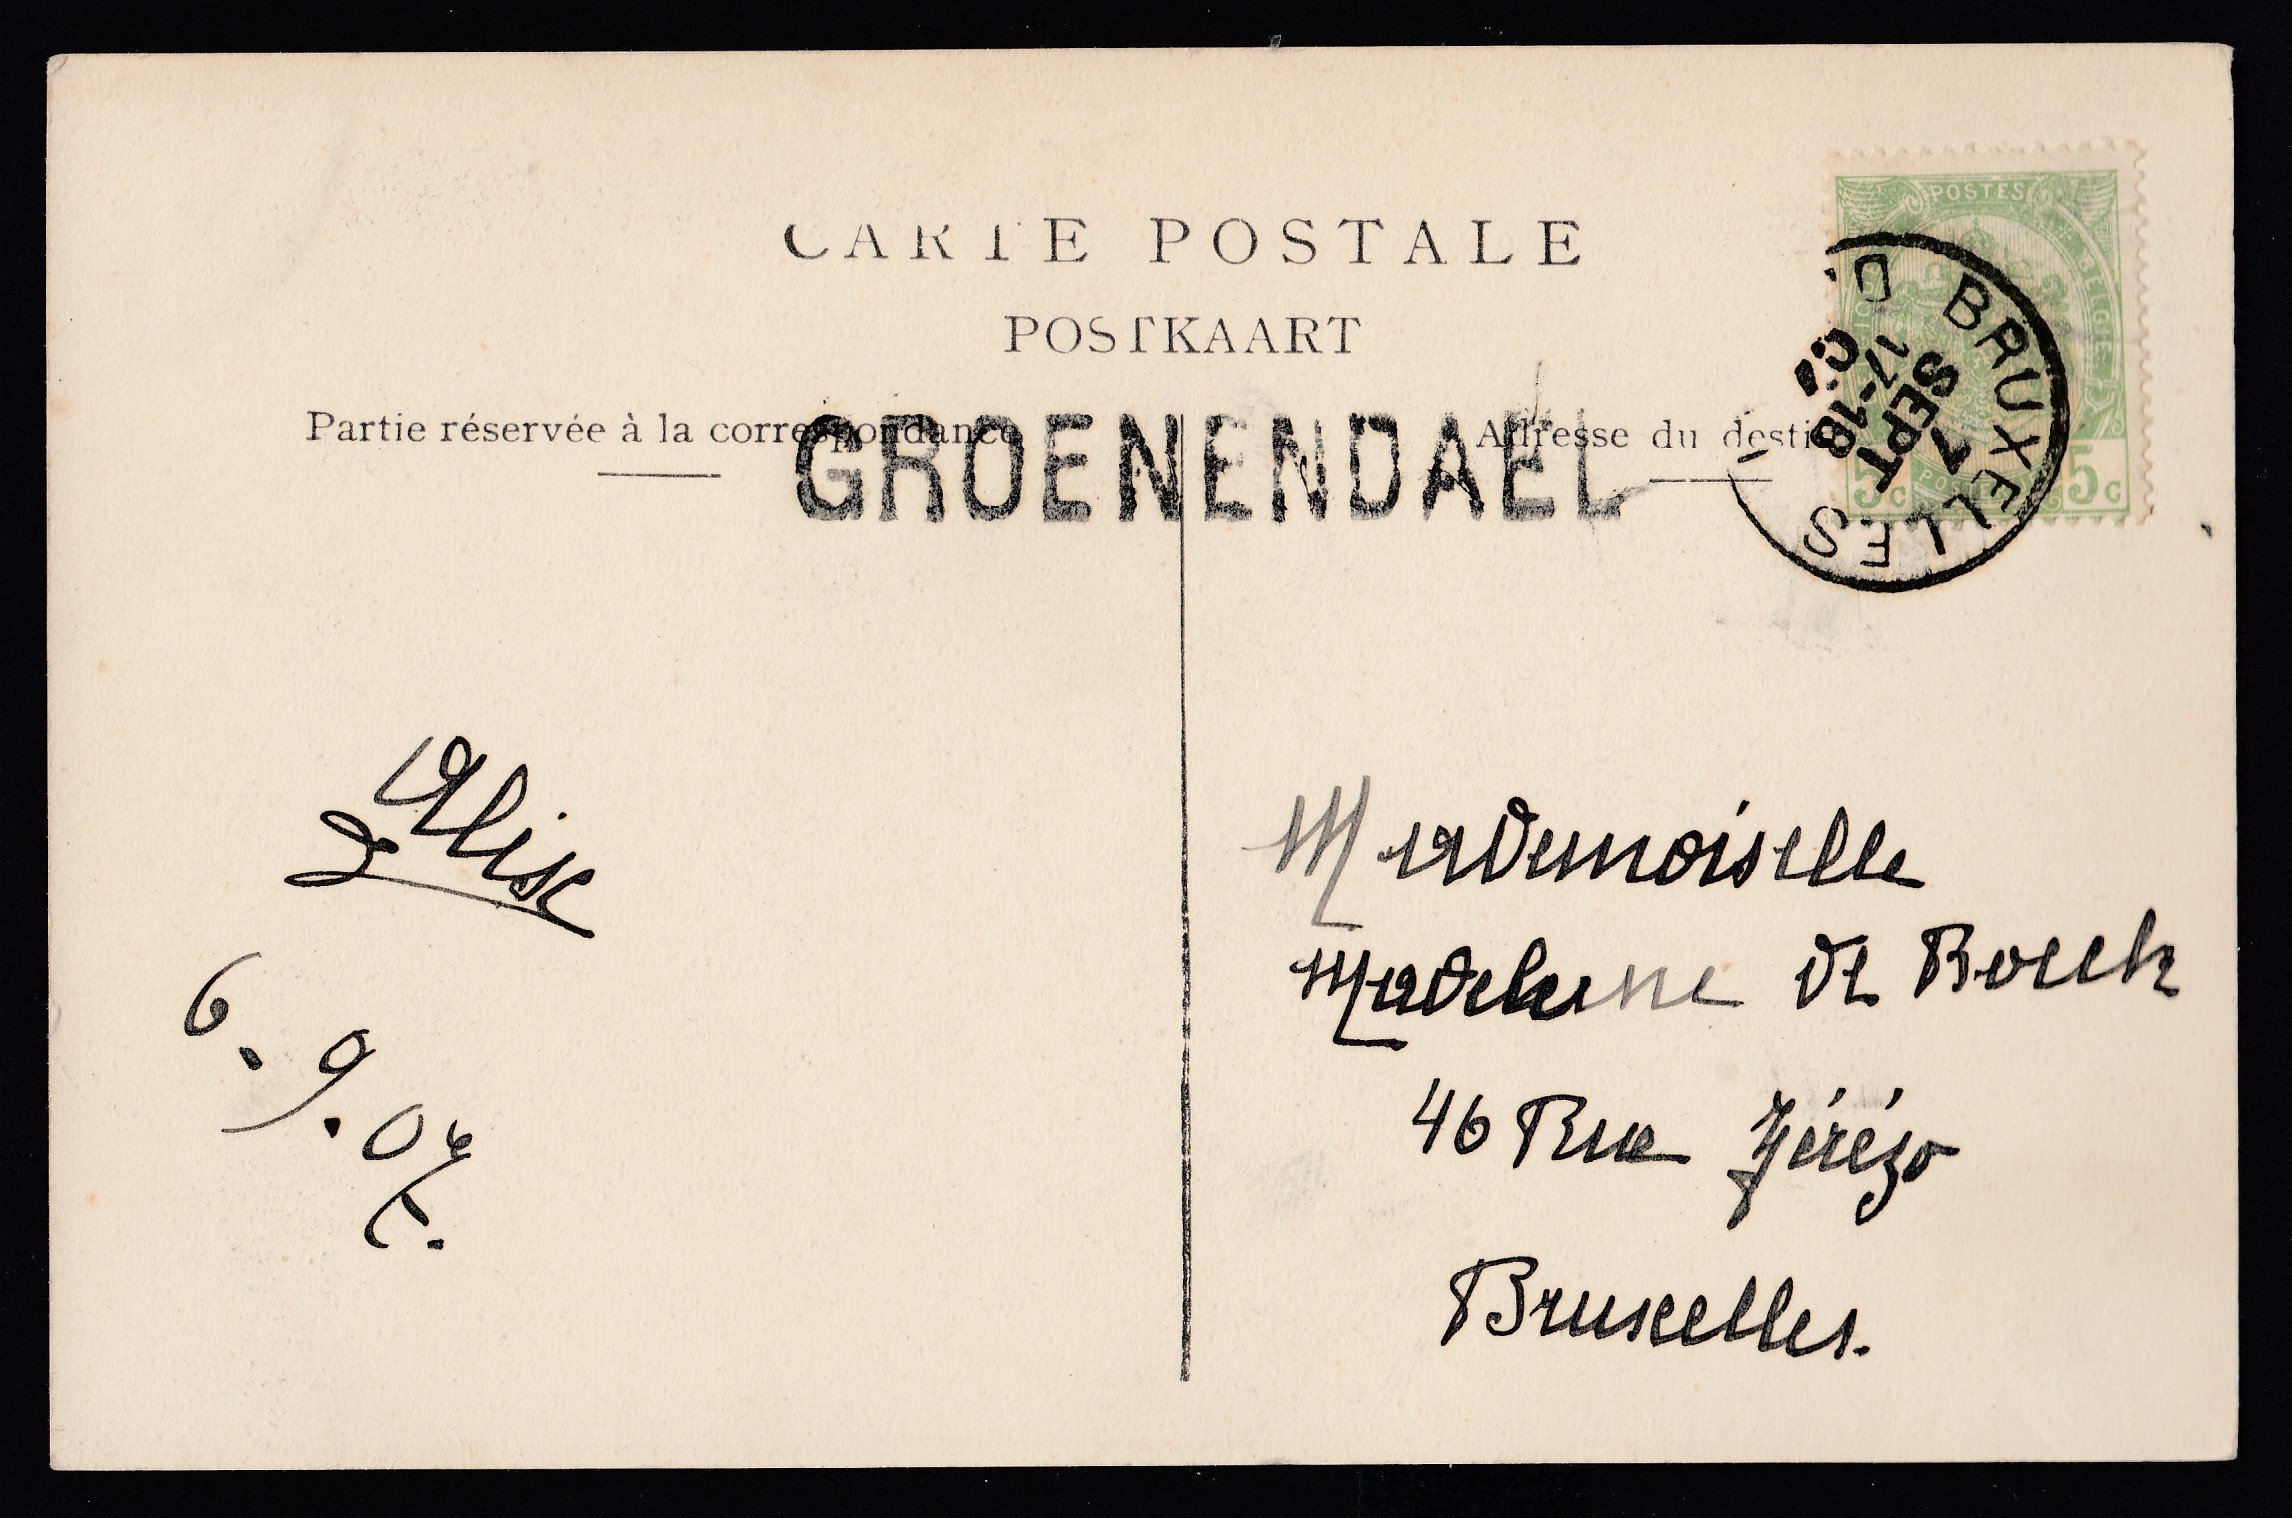 CARTE POSTALE
POSTKAART
Partie réservée à la correspondance
Adresse du desti
GROENENDAEL
POSTES
BELGIE
5c
5c
BRUXELLES
17-18
7
SEPT
Alice
6.9.04
Mademoiselle
Madeleine de Bouck
46 Rue Jérézo
Bruxelles.